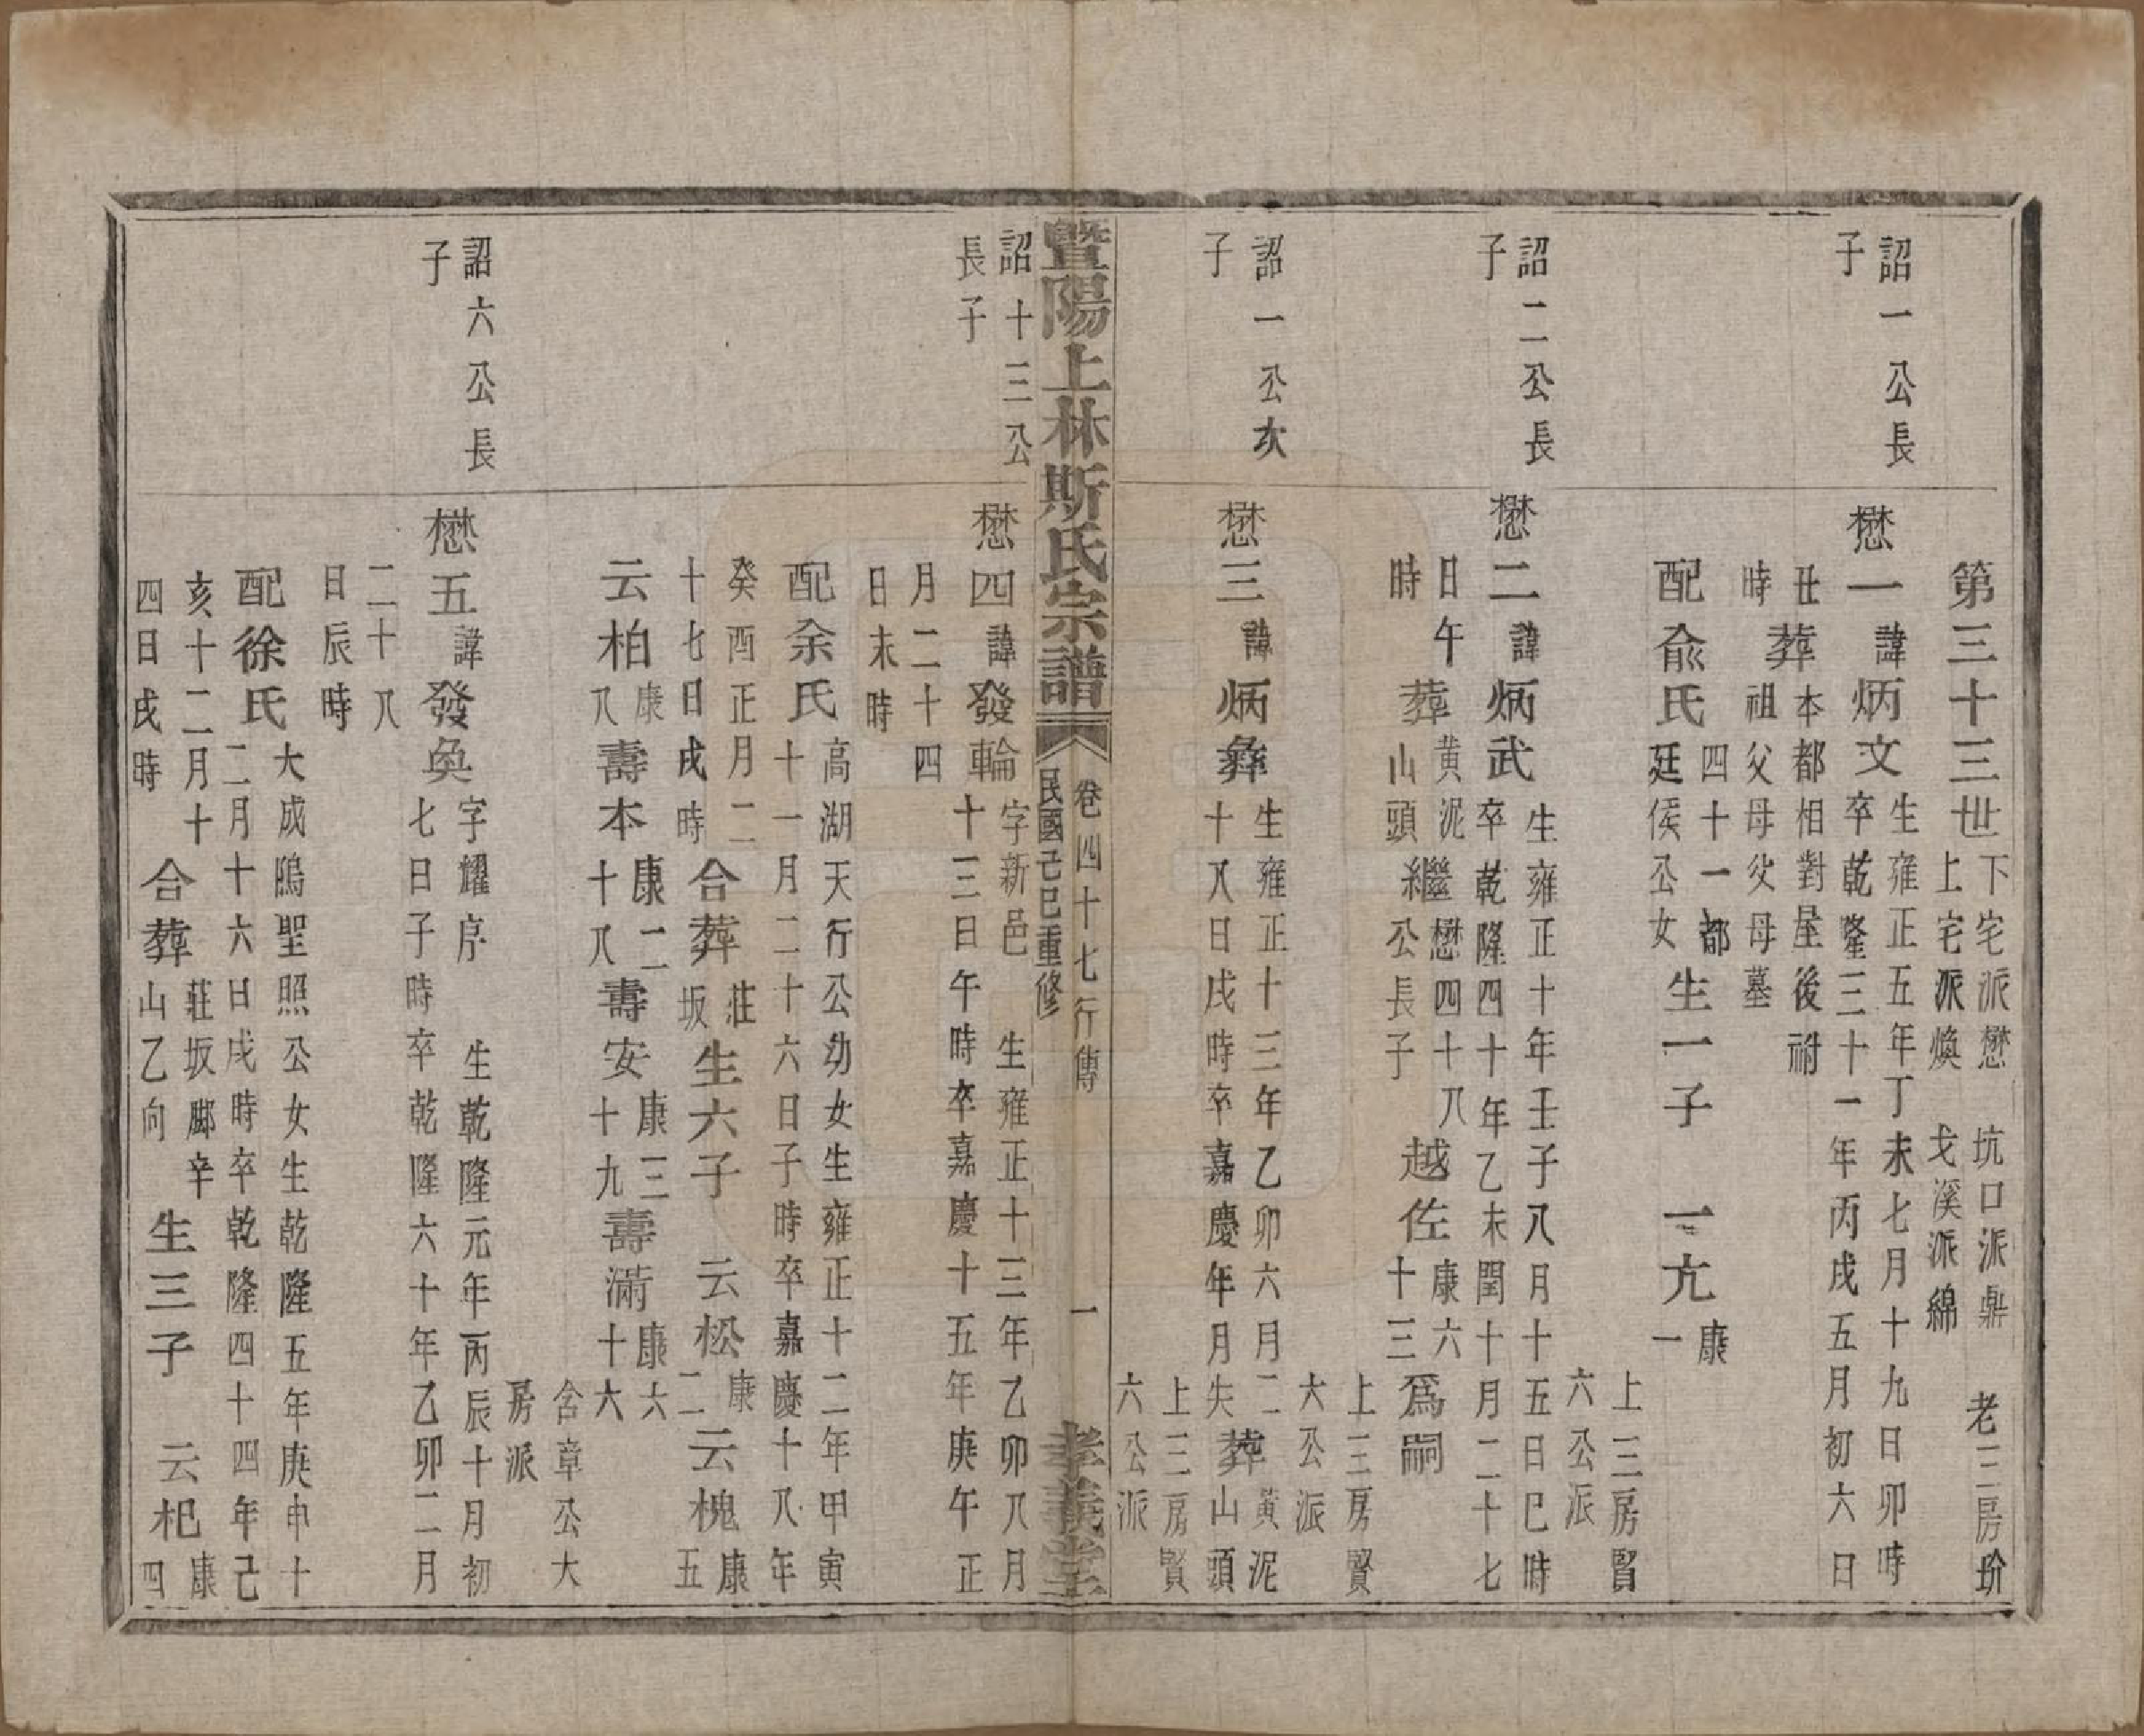 第三十三世
下宅派懋 坑口派鼎 老三房玠
上宅派煥 戈溪派綿
詔一公長
子
懋一
諱炳文
生雍正五年丁未七月十九日卯時
卒乾隆三十一年丙戌五月初六日
丑時
葬
本都相對屋後祔
祖父母父母墓
配俞氏
四十一都
廷侯公女
生一子 一亢
康一
上三房賢
六公派
詔二公長
子
懋二
諱炳武
生雍正十年壬子八月十五日巳時
卒乾隆四十年乙未閏十月二十七
日午時
葬
黃泥
山頭
繼
懋四十八
公長子
越佐
康六
十三
爲嗣
上三房賢
六公派
詔一公次
子
懋三
諱炳彝
生雍正十三年乙卯六月二
十八日戌時卒嘉慶年月失
葬
黃泥
山頭
上三房賢
六公派
暨陽上林斯氏宗譜
卷四十七行傳 一
民國己巳重修
孝義堂
詔十三公
長子
懋四
諱發輪
字新邑 生雍正十三年乙卯八月
十三日午時卒嘉慶十五年庚午正
月二十四
日未時
配余氏
高湖天行公幼女生雍正十二年甲寅
十一月二十六日子時卒嘉慶十八年
癸酉正月二
十七日戌時
合葬
莊坂
生六子 云松
康二
云槐
康五
云柏
康八
壽本
康二
十八
壽安
康三
十九
壽滿
康六
十六
含章公大
房派
詔六公長
子
懋五
諱發奐
字耀序 生乾隆元年丙辰十月初
七日子時卒乾隆六十年乙卯二月
二十八
日辰時
配徐氏
大成隝聖照公女生乾隆五年庚申十
二月十六日戌時卒乾隆四十四年己
亥十二月十
四日戌時
合葬
莊坂腳辛
山乙向
生三子 云杞
康四